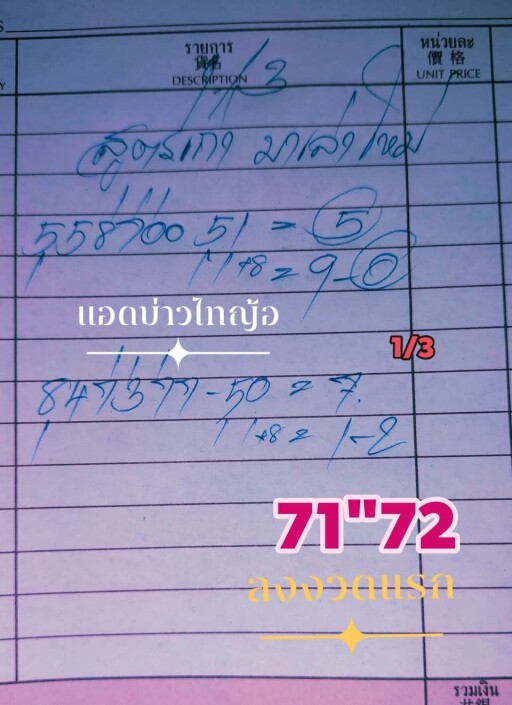 รายการ
貨名
DESCRIPTION
หน่วยละ
價格
UNIT PRICE
1/3
สูตรเก่า มาเล่าใหม่
558700 51 = 5
11+8 = 9-0
แอดบ่าวไทญ้อ
1/3
847377-50 = 7.
11+8 = 1-2
71"72
ลงงวดแรก
รวมเงิน